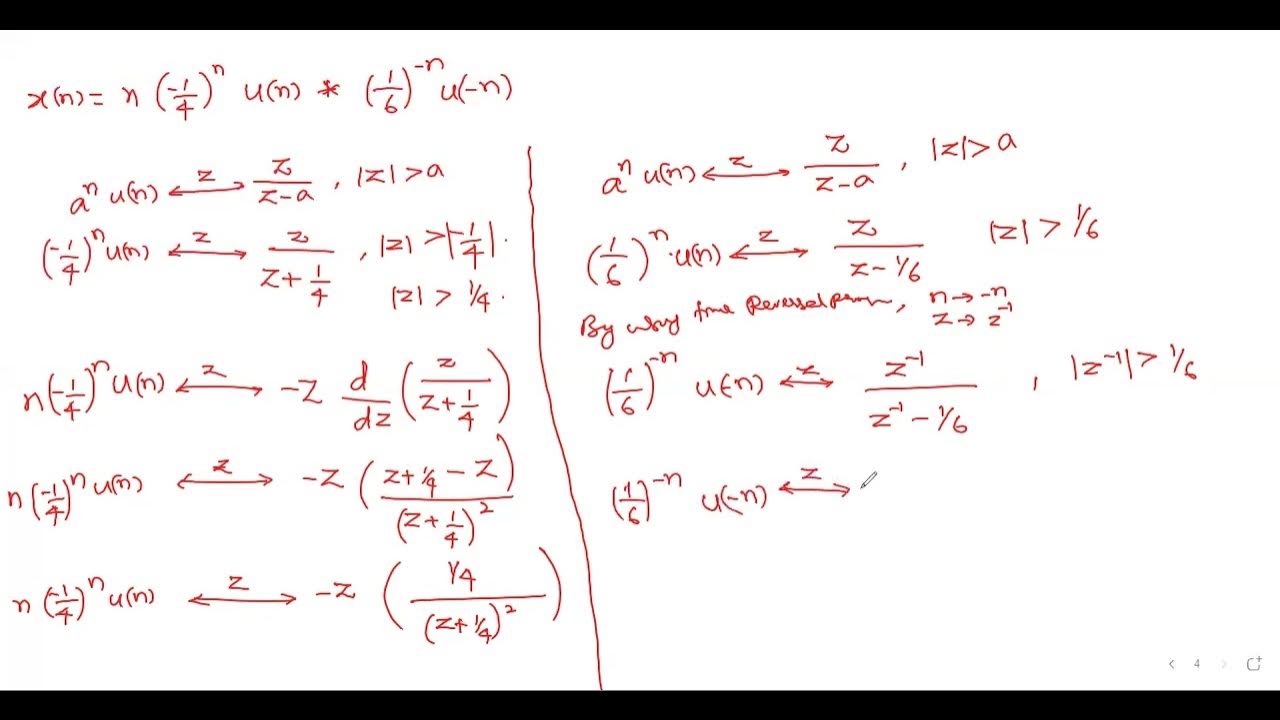 x(n) = n (-1/4)^n u(n) * (1/6)^-n u(-n)
a^n u(n) ⟷z z/(z-a) , |z| > a
(-1/4)^n u(n) ⟷z z/(z+1/4) , |z| > |-1/4| .
|z| > 1/4 .
n(-1/4)^n u(n) ⟷z -z d/dz (z/(z+1/4))
n(-1/4)^n u(n) ⟷z -z ((z+1/4-z)/(z+1/4)^2)
n(-1/4)^n u(n) ⟷z -z ((1/4)/(z+1/4)^2)
a^n u(n) ⟷z z/(z-a) , |z| > a
(1/6)^n . u(n) ⟷z z/(z-1/6) |z| > 1/6
By time Reversal , n→-n
z→z^-1
(1/6)^-n u(-n) ⟷z z^-1/(z^-1 - 1/6) , |z^-1| > 1/6
(1/6)^-n u(-n) ⟷z
< 4 >